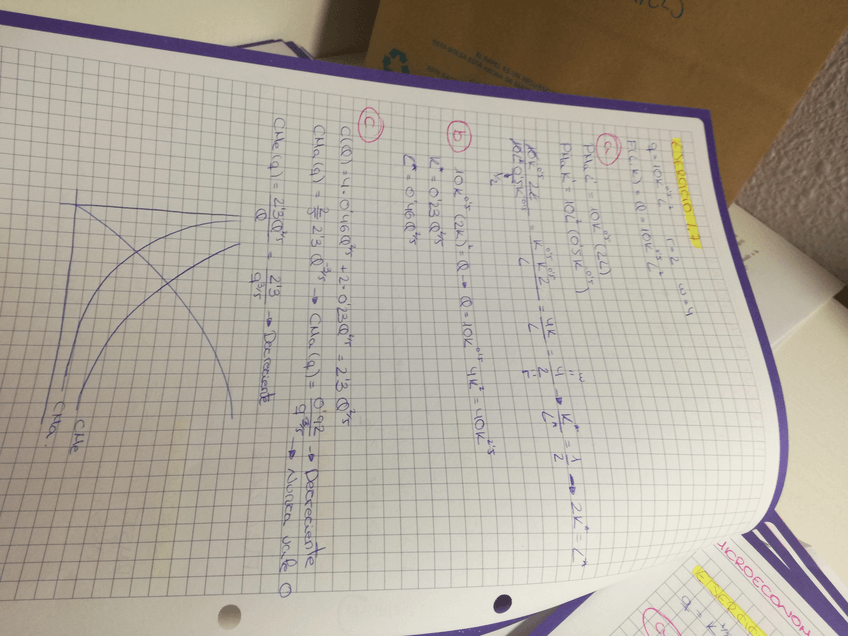 EJERCICIO 17
q = 10K^0'5 L^2 r = 2 w = 4
F(L,K) = Q = 10K^0'5 L^2
a
PMg L = 10K^0'5 (2L)
PMg K = 10L^2 (0'5K^-0'5)
= 4K/L = 4/2 → K*/L* = 1/2 → 2K* = L*
b
10K^0'5 (2K)^2 = Q → Q = 10K^0'5 4K^2 = 40K^2'5
K* = 0'23Q^2/5
L* = 0'46Q^2/5
c
C(Q) = 4·0'46Q^2/5 + 2·0'23Q^2/5 = 2'3Q^2/5
CMa(q) = 2/5 2'3 Q^-3/5 → CMa(q) = 0'92/q^3/5 → Decreciente
→ Nunca vale 0
CMe(q) = 2'3Q^2/5/Q = 2'3/q^3/5 → Decreciente
CMe
CMa